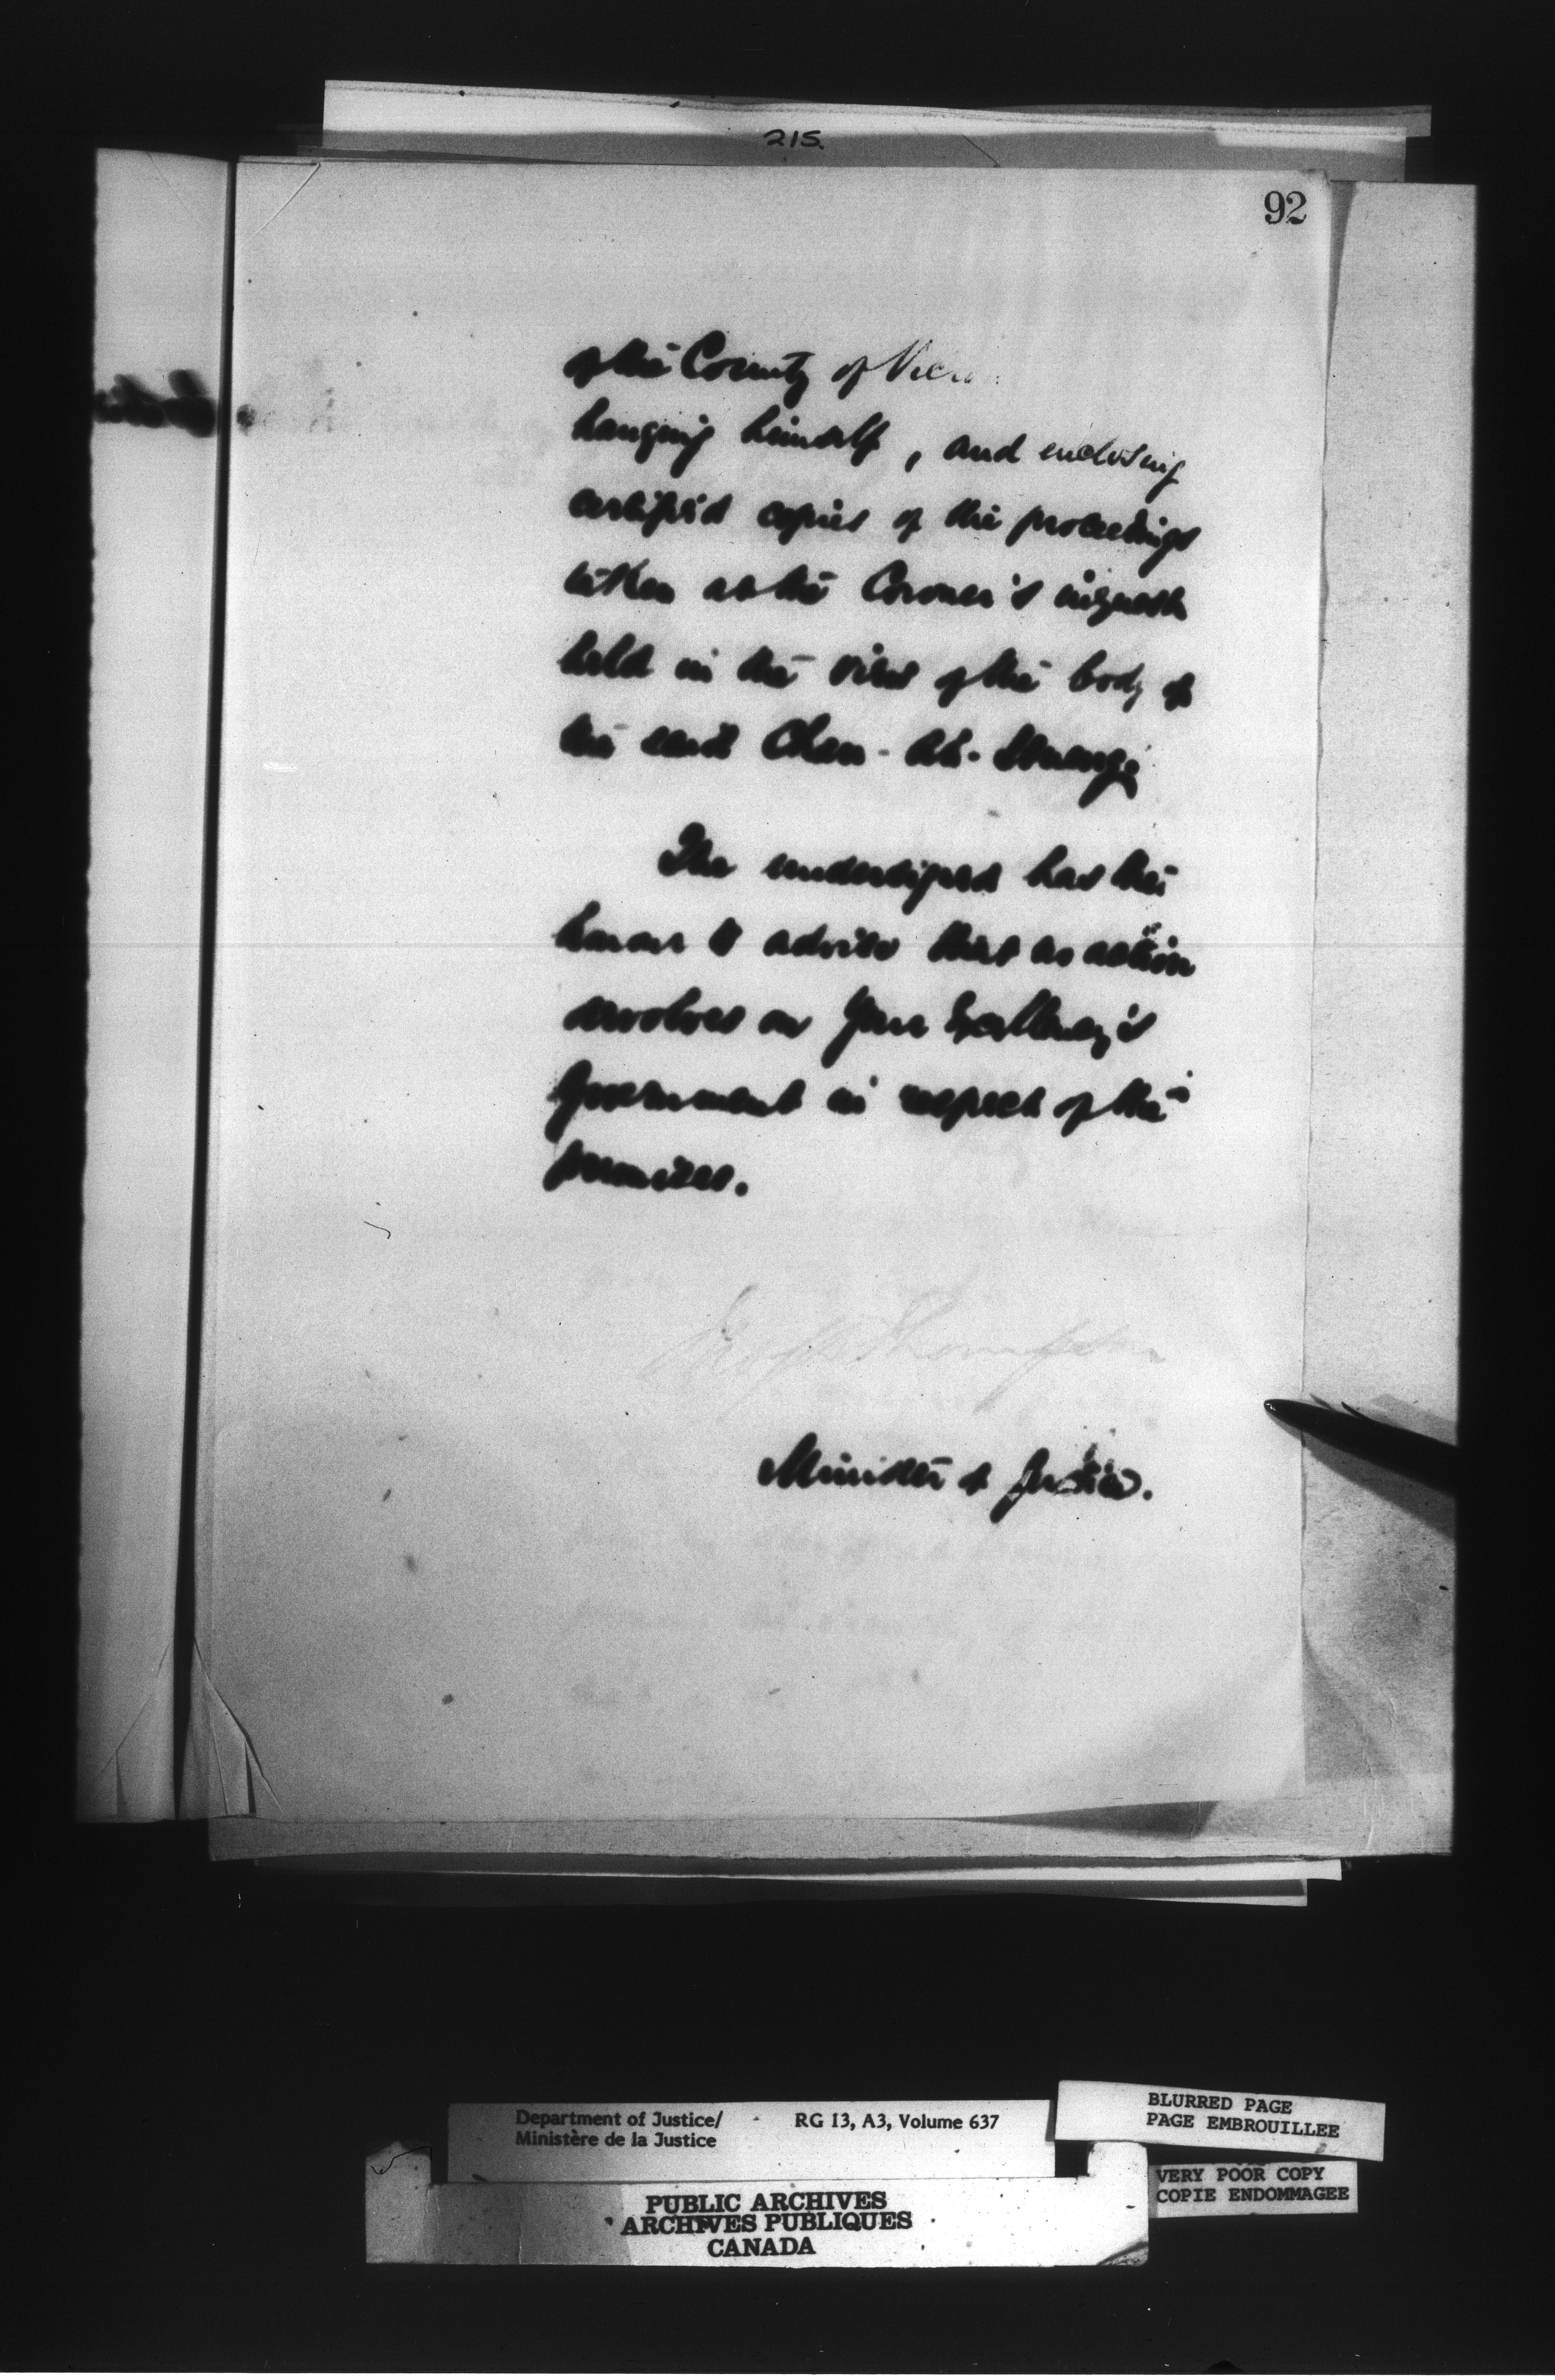 215.
92
of the County of
hanging himself, and enclosing
certified copies of the proceedings
taken at the Coroner's inquest
held in the view of the body of
the said Chen - Ah -
The undersigned has the
honor to advise that no action
devolves on Your Excellency's
Government in respect of the
premises.
Thompson
Minister of Justice.
Department of Justice/ RG 13, A3, Volume 637
Ministère de la Justice
BLURRED PAGE
PAGE EMBROUILLEE
VERY POOR COPY
COPIE ENDOMMAGEE
PUBLIC ARCHIVES
ARCHIVES PUBLIQUES
CANADA